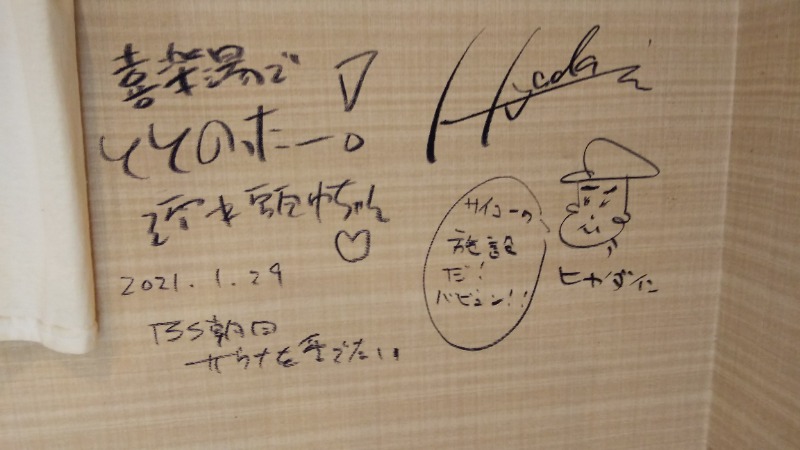 喜楽湯で
ととのったー。!
清水みさとちゃん
♡
2021.1.29
BS朝日
サウナを愛でたい
Hyadain
サイコーの
施設
だ!
バビュン!!
ヒャダイン